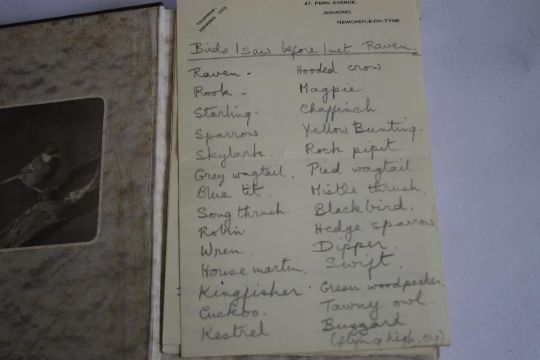 TELEPHONE:
JESMOND
47, FERN AVENUE,
JESMOND,
NEWCASTLE-ON-TYNE.
Birds I saw before I met Raven.
Raven - Hooded crow.
Rook - Magpie
Starling. Chaffinch
Sparrow Yellow Bunting.
Skylark. Rock pipit
Grey wagtail. Pied wagtail
Blue tit. Mistle thrush
Song thrush. Blackbird.
Robin Hedge sparrow
Wren. Dipper.
House martin. Swift.
Kingfisher. Green woodpecker.
Cuckoo. Tawny owl.
Kestrel Buzzard
(flying high,